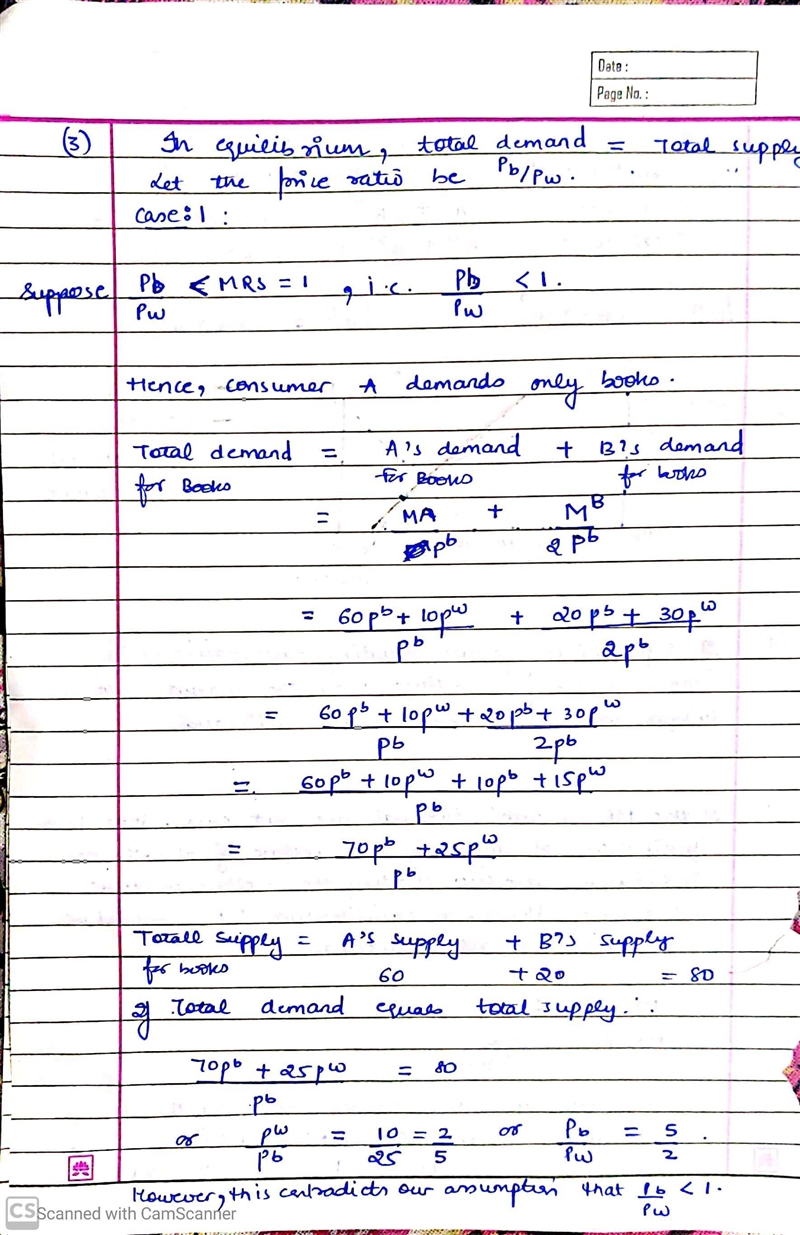 Date :
Page No. :
(3) In equilibrium, total demand = Total supply
Let the price ratio be Pb/Pw.
Case: 1 :
Suppose Pb/Pw < MRS = 1 , i.e. Pb/Pw < 1.
Hence, consumer A demands only books.
Total demand = A's demand + B's demand
for Books for Books for books
= MA/pb + M^B/2pb
= 60pb + 10pw/pb + 20pb + 30pw/2pb
= 60pb + 10pw/pb + 20pb + 30pw/2pb
= 60pb + 10pw + 10pb + 15pw/pb
= 70pb + 25pw/pb
Totall supply = A's supply + B's supply
for books 60 + 20 = 80
If Total demand equals total supply.
70pb + 25pw/pb = 80
or pw/pb = 10/25 = 2/5 or Pb/Pw = 5/2.
However, this contradicts our assumption that Pb/Pw < 1.
CS Scanned with CamScanner